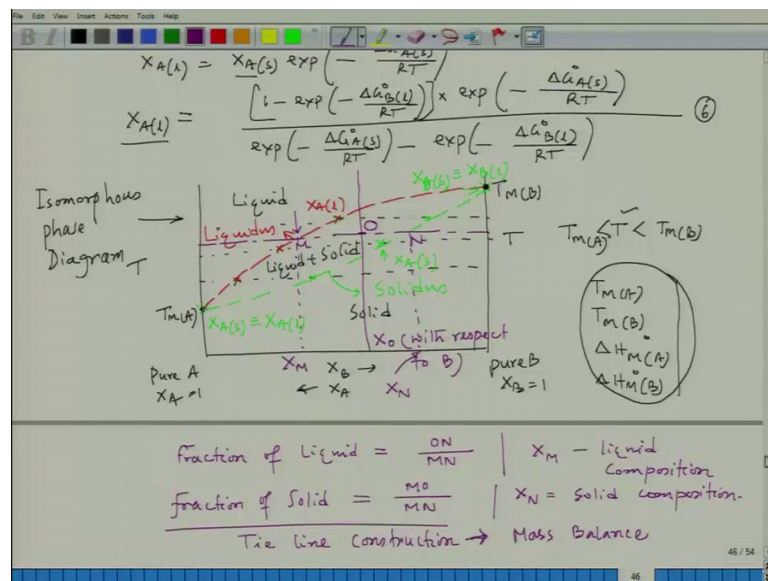 File Edit View Insert Actions Tools Help
X_A(l) = X_A(s) exp(- ΔG°_A(s) / RT)
X_A(l) = [1 - exp(- ΔG°_B(l) / RT)] × exp(- ΔG°_A(s) / RT) / exp(- ΔG°_A(s) / RT) - exp(- ΔG°_B(l) / RT) ⑥
Isomorphous
phase
Diagram
T
Liquid
X_A(l)
X_B(s) ≡ X_B(l)
T_M(B)
Liquidus
M
O
N
T
T_M(A) < T < T_M(B)
Liquid + Solid
X_A(s)
Solidus
T_M(A)
X_A(s) ≡ X_A(l)
Solid
X_O (with respect
to B)
T_M(A)
T_M(B)
ΔH°_M(A)
ΔH°_M(B)
pure A
X_A = 1
X_M
X_B →
← X_A
X_N
pure B
X_B = 1
Fraction of Liquid = ON / MN | X_M - liquid
composition
fraction of Solid = MO / MN | X_N = Solid composition.
Tie line construction → Mass Balance
46 / 54
46